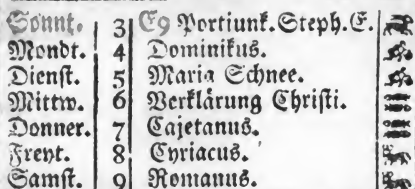 Sonnt. 3 E9 Portiunk. Steph. E.
Mondt. 4 Dominikus.
Dienst. 5 Maria Schnee.
Mittw. 6 Verklärung Christi.
Donner. 7 Cajetanus.
Freyt. 8 Cyriacus.
Samst. 9 Romanus.